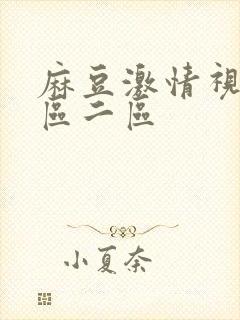 麻豆激情視
區二區
小夏奈